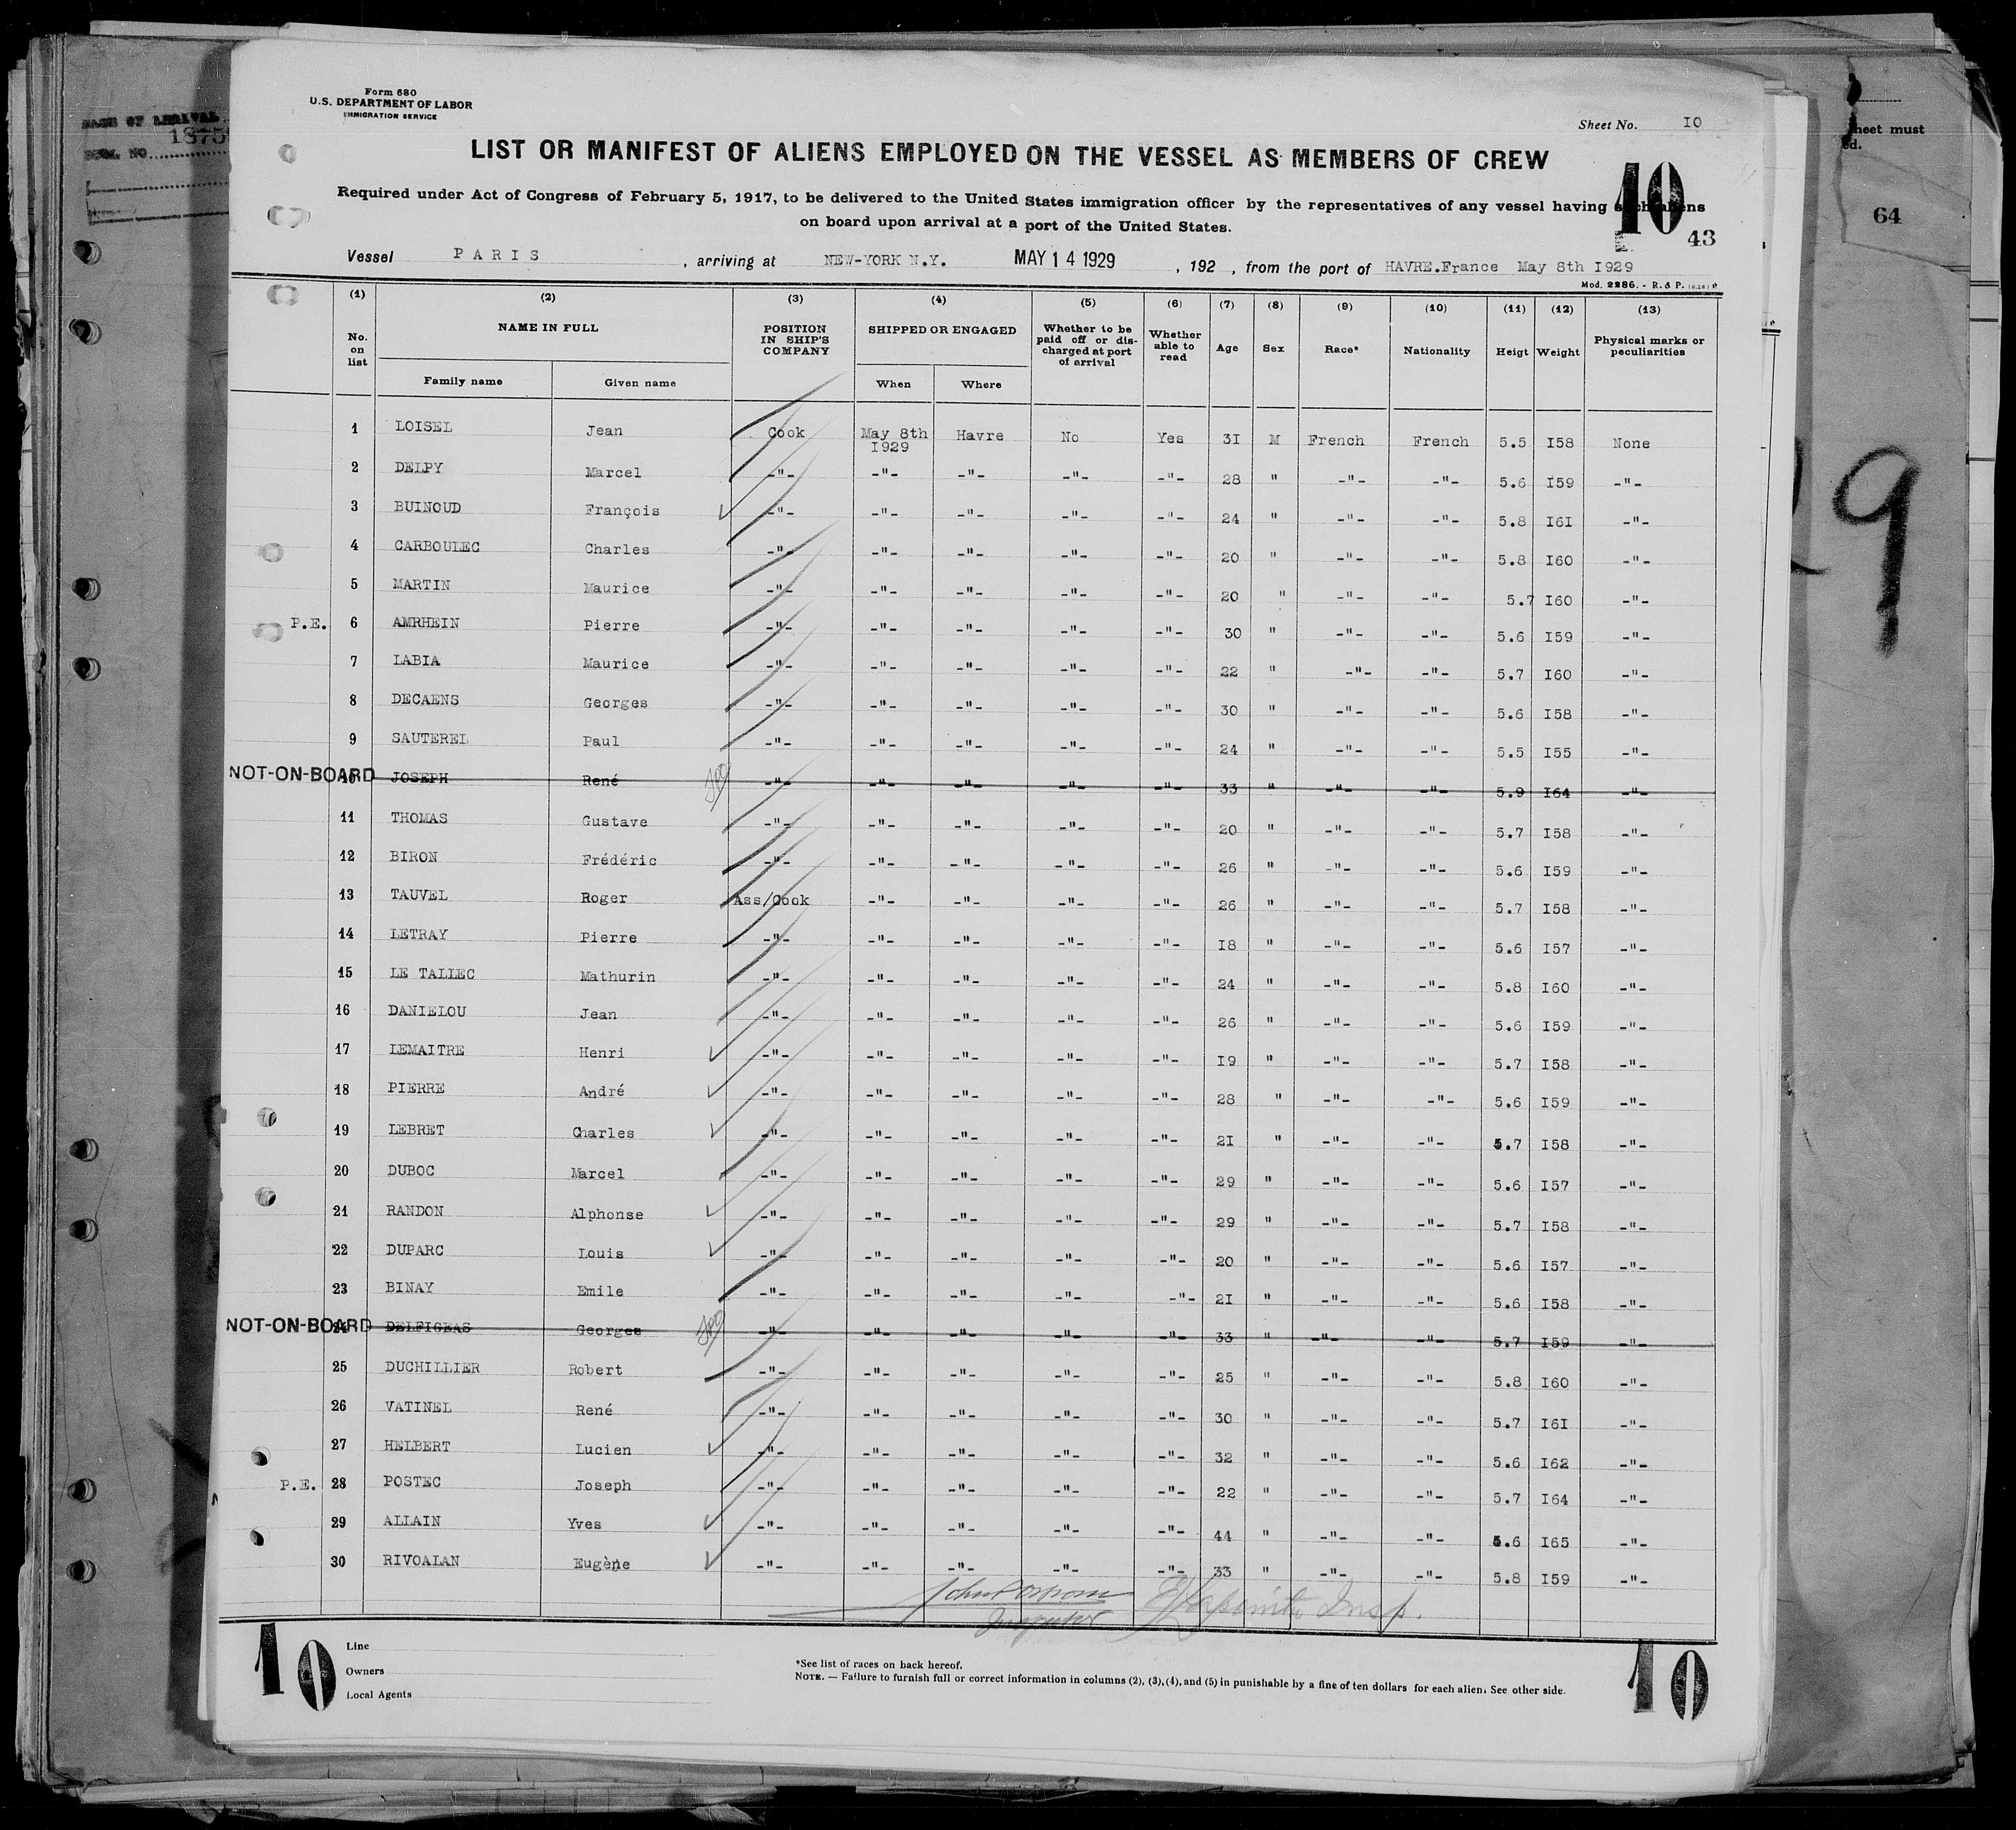 DATE OF ARRIVAL
1875
Form 680
U.S. DEPARTMENT OF LABOR
IMMIGRATION SERVICE
Sheet No. I0
LIST OR MANIFEST OF ALIENS EMPLOYED ON THE VESSEL AS MEMBERS OF CREW
40
Required under Act of Congress of February 5, 1917, to be delivered to the United States immigration officer by the representatives of any vessel having such aliens
on board upon arrival at a port of the United States.
43
Vessel PARIS , arriving at NEW-YORK N.Y. MAY 14 1929 , 192 , from the port of HAVRE.France May 8th I929
Mod. 2286. - R. & P.
(1) (2) (3) (4) (5) (6) (7) (8) (9) (10) (11) (12) (13)
No. on list NAME IN FULL POSITION IN SHIP'S COMPANY SHIPPED OR ENGAGED Whether to be paid off or discharged at port of arrival Whether able to read Age Sex Race* Nationality Heigt Weight Physical marks or peculiarities
Family name Given name When Where
1 LOISEL Jean Cook May 8th I929 Havre No Yes 3I M French French 5.5 I58 None
2 DELPY Marcel -"- -"- -"- -"- -"- 28 " -"- -"- 5.6 I59 -"-
3 BUINOUD François -"- -"- -"- -"- -"- 24 " -"- -"- 5.8 I6I -"-
4 CARBOULEC Charles -"- -"- -"- -"- -"- 20 " -"- -"- 5.8 I60 -"-
5 MARTIN Maurice -"- -"- -"- -"- -"- 20 " -"- -"- 5.7 I60 -"-
P.E. 6 AMRHEIN Pierre -"- -"- -"- -"- -"- 30 " -"- -"- 5.6 I59 -"-
7 LABIA Maurice -"- -"- -"- -"- -"- 22 " -"- -"- 5.7 I60 -"-
8 DECAENS Georges -"- -"- -"- -"- -"- 30 " -"- -"- 5.6 I58 -"-
9 SAUTEREL Paul -"- -"- -"- -"- -"- 24 " -"- -"- 5.5 I55 -"-
NOT-ON-BOARD 10 JOSEPH René -"- -"- -"- -"- -"- 33 " -"- -"- 5.9 I64 -"-
11 THOMAS Gustave -"- -"- -"- -"- -"- 20 " -"- -"- 5.7 I58 -"-
12 BIRON Frédéric -"- -"- -"- -"- -"- 26 " -"- -"- 5.6 I59 -"-
13 TAUVEL Roger Ass/Cook -"- -"- -"- -"- 26 " -"- -"- 5.7 I58 -"-
14 LETRAY Pierre -"- -"- -"- -"- -"- I8 " -"- -"- 5.6 I57 -"-
15 LE TALLEC Mathurin -"- -"- -"- -"- -"- 24 " -"- -"- 5.8 I60 -"-
16 DANIELOU Jean -"- -"- -"- -"- -"- 26 " -"- -"- 5.6 I59 -"-
17 LEMAITRE Henri -"- -"- -"- -"- -"- I9 " -"- -"- 5.7 I58 -"-
18 PIERRE André -"- -"- -"- -"- -"- 28 " -"- -"- 5.6 I59 -"-
19 LEBRET Charles -"- -"- -"- -"- -"- 2I " -"- -"- 5.7 I58 -"-
20 DUBOC Marcel -"- -"- -"- -"- -"- 29 " -"- -"- 5.6 I57 -"-
21 RANDON Alphonse -"- -"- -"- -"- -"- 29 " -"- -"- 5.7 I58 -"-
22 DUPARC Louis -"- -"- -"- -"- -"- 20 " -"- -"- 5.6 I57 -"-
23 BINAY Emile -"- -"- -"- -"- -"- 2I " -"- -"- 5.6 I58 -"-
NOT-ON-BOARD 24 DELFIGEAS Georges -"- -"- -"- -"- -"- 33 " -"- -"- 5.7 I59 -"-
25 DUCHILLIER Robert -"- -"- -"- -"- -"- 25 " -"- -"- 5.8 I60 -"-
26 VATINEL René -"- -"- -"- -"- -"- 30 " -"- -"- 5.7 I6I -"-
27 HELBERT Lucien -"- -"- -"- -"- -"- 32 " -"- -"- 5.6 I62 -"-
P.E. 28 POSTEC Joseph -"- -"- -"- -"- -"- 22 " -"- -"- 5.7 I64 -"-
29 ALLAIN Yves -"- -"- -"- -"- -"- 44 " -"- -"- 5.6 I65 -"-
30 RIVOALAN Eugène -"- -"- -"- -"- -"- 33 " -"- -"- 5.8 I59 -"-
Inspector Insp.
10 10
Line
Owners
Local Agents
*See list of races on back hereof.
NOTE. — Failure to furnish full or correct information in columns (2), (3), (4), and (5) in punishable by a fine of ten dollars for each alien. See other side.
sheet must
ed.
64
9